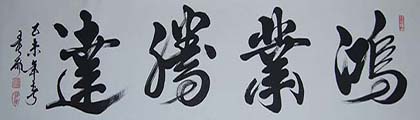 鴻業騰達
乙未年春